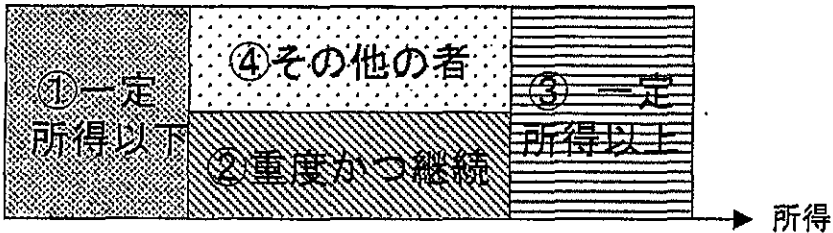 ①一定
所得以下
④その他の者
②重度かつ継続
③ 一定
所得以上
所得